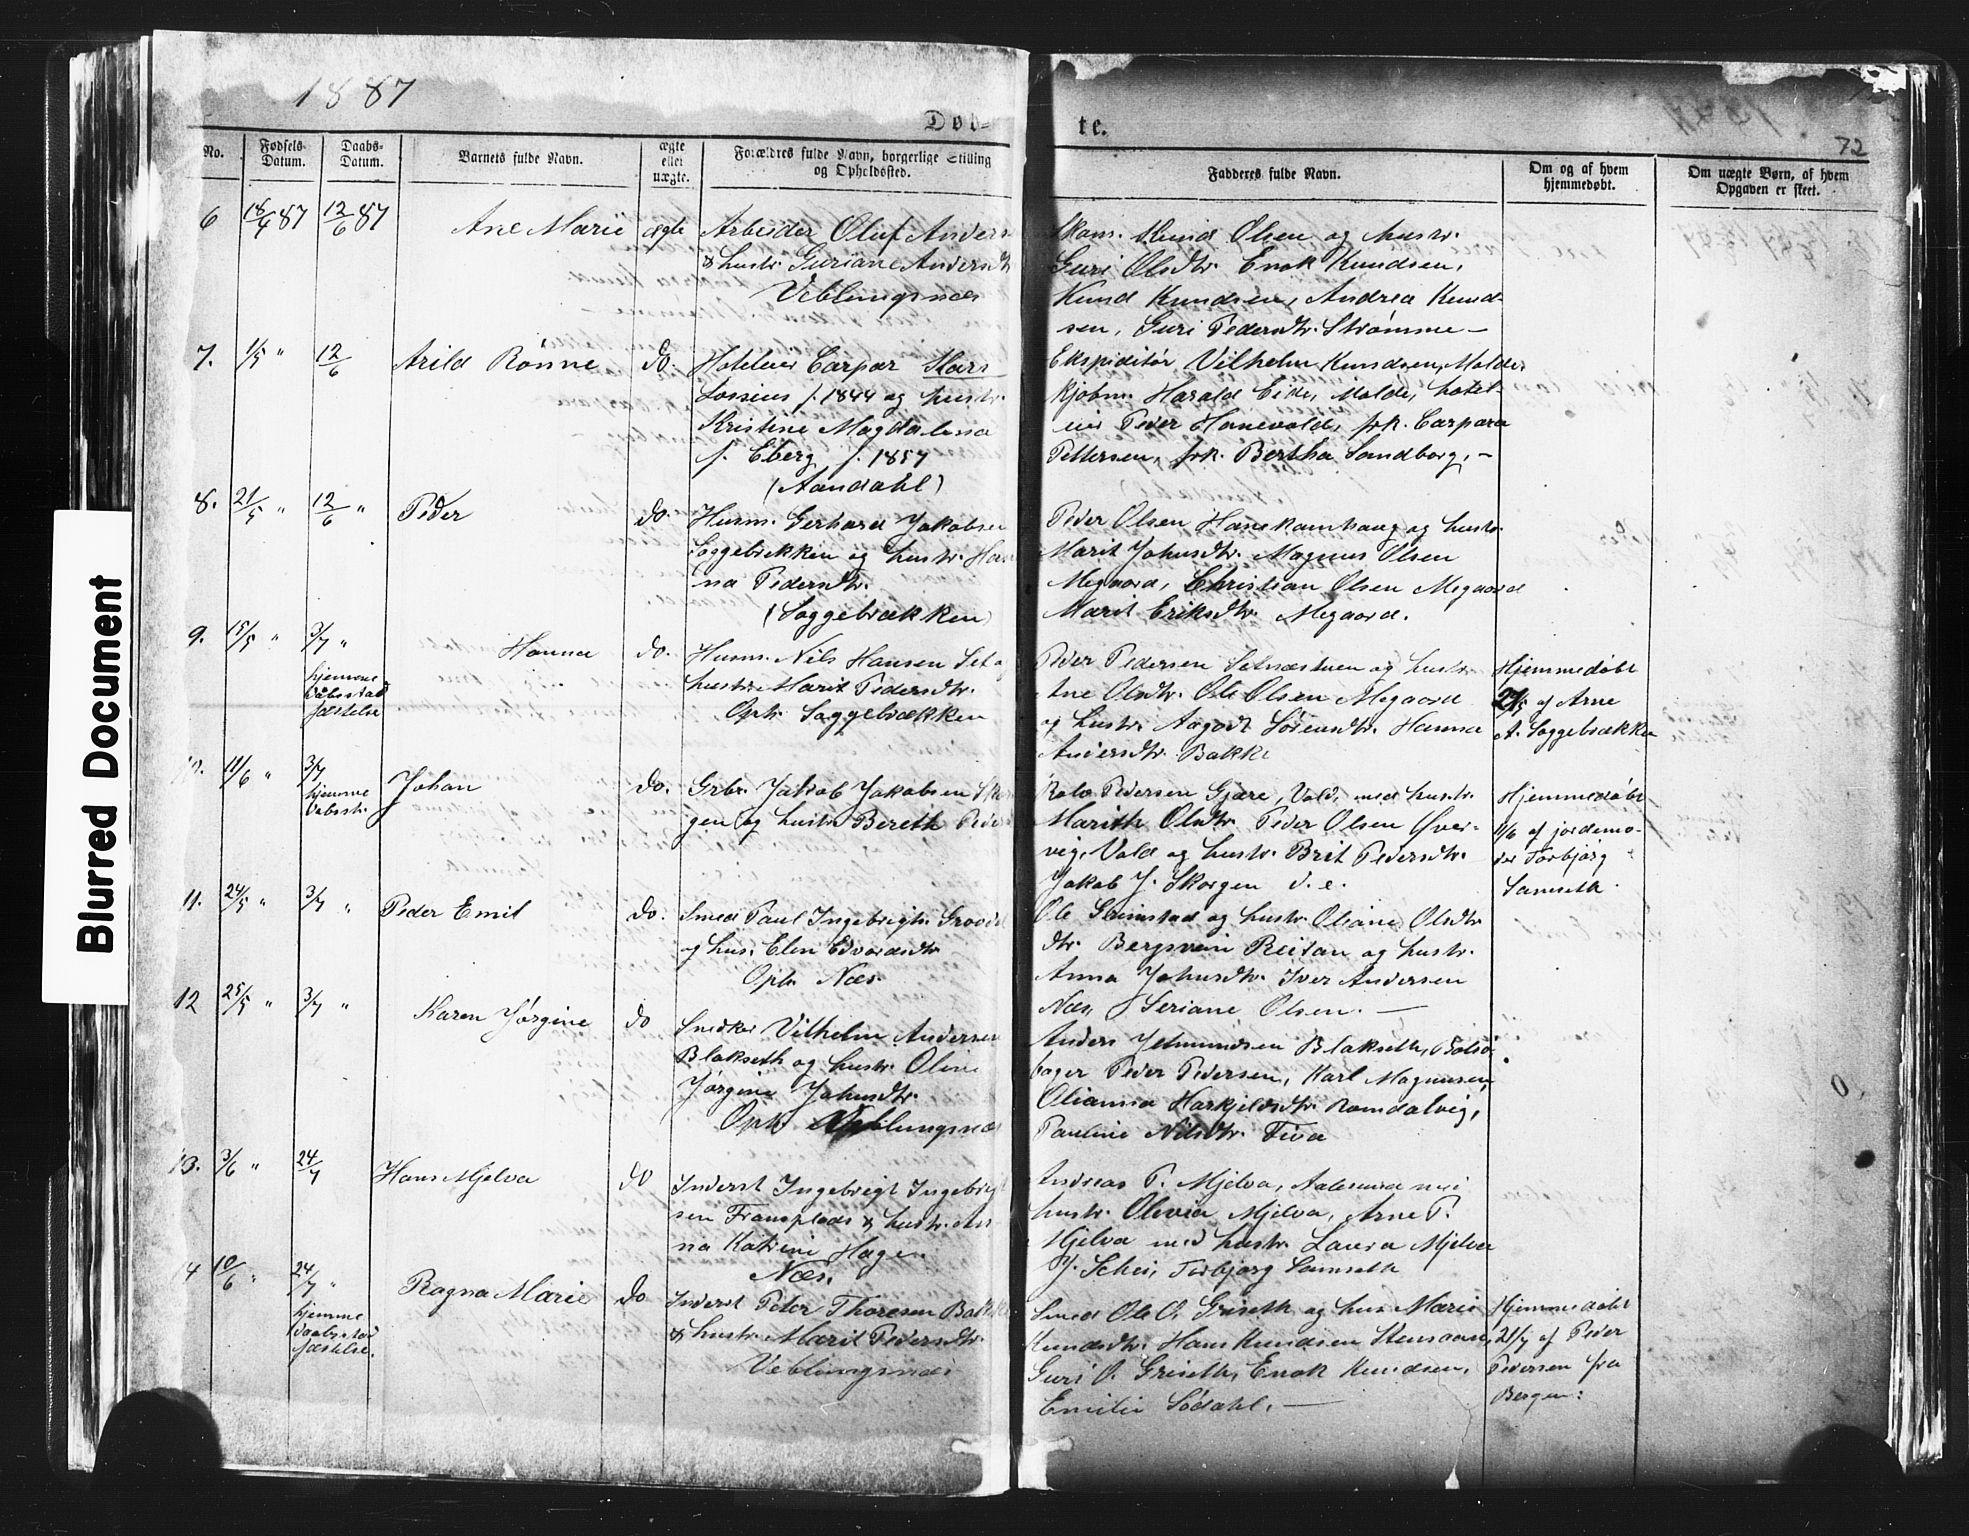 1887
72
Døb-
te.
No.
Fødsels-
Datum.
Daabs-
Datum.
Barnets fulde Navn.
ægte
eller
uægte.
Forældres fulde Navn, borgerlige Stilling
og Opholdssted.
Fadderes fulde Navn.
Om og af hvem
hjemmedøbt.
Om uægte Børn, af hvem
Opgaven er skeet.
Blurred Document
6 18/4 87 12/6 87 Ane Marie ægte
Arbeider Oluf Anders
& hustr. Guriane Andersdt
Veblungsnæs
Knud Olsen og hustr.
Guri Olsdtr. Enok Knudsen,
Knud Knudsen, Andrea Knud-
sen, Guri Pedersdtr. Strømme –
7. 1/5 " 12/6 Arild Rønne do.
Hoteleier Carpar
Lossius f. 1844 og hustr.
Kristine Magdalena
f. Eberg f. 1857
(Aandahl)
Ekspeditør Vilhelm Knudsen, Molde,
Kjøbm. Harald Eide, Molde, hotel-
eier Peder Hanevold, frk. Carpara
Pettersen, frk. Bertha Sandborg, –
8. 21/5 " 12/6 " Peder do.
Husm. Gerhard Jakobsen
Soggebækken og hustr. Han
na Pedersdtr.
(Soggebækken)
Peder Olsen Hanekamhaug og hustr.
Marit Johnsdtr. Magnus Olsen
Megaard, Christian Olsen Megaard
Marit Eriksdtr. Megaard.
9. 15/5 " 3/7 " Hanna do.
hjemme
daabsstad
fæstelse
Husm. Nils Hansen Set
hustr. Marit Pedersdtr.
Oph. Soggebækken
Peder Pedersen og hustr.
Ane Olsdtr. Ole Olsen Megaard
og hustr. Aagodt Sørensdtr. Hanna
Andersdtr. Bakke
Hjemmedøbt
29/5 af Arne
A. Soggebækken
10. 11/6 " 3/7 Johan do.
hjemme
Dabsst.
Grbr. Jakob Jakobsen Skor
gen og hustr. Bereth Peders
Rolv Pedersen Gjære, Vold, med hustr.
Marith Olsdtr. Peder Olsen Øver-
vig, Vold og hustr. Brit Pedersdtr.
Jakob J. Skorgen d. e.
Hjemmedøbt
11/6 af jordemo-
der Torbjørg
Samseth.
11. 24/5 " 3/7 " Peder Emil do.
Smed Paul Ingebrigts.
og hus. Elen Edvardsdtr.
Oph. Næs.
Ole Grimstad og hustr. Oliane Olsdtr
dtr. Bergsvein Reitan og hustr.
Anna Johnsdtr. Iver Andersen
Næs, Seriane Olsen. –
12 25/5 " 3/7 " Karen Jørgine do
Snedker Vilhelm Andersen
Blakseth og hustr. Oline
Jørgine Johnsdtr.
Oph. Veblungsnæs
Anders Blakseth,
bager Peder Pedersen, Karl Magnusen,
Olianna Harkjelsdtr. Romdalvig,
Pauline Nilsdtr. Fiva
13. 3/6 " 24/7 Hans Mjelva do
Inderst Ingebrigt Ingebrigt
sen Fransplads & hustr. An
na Katrine Hagen
Næs.
Andreas P. Mjelva, Aalesund med
hustr. Olivia Mjelva, Arne P.
Mjelva med hustr. Laura Mjelva
J. Schei, Torbjørg Samseth
14 10/6 " 24/7 " Ragna Marie do
hjemme
daabsstad
fæstelse.
Inderst Peter Thoresen Bakke
& hustr. Marit Pedersdtr.
Veblungsnæs
Smed Ole O. Griseth og hus Marie
Knudsdtr. Hans Knudsen Stensaas,
Guri O. Griseth, Enok Knudsen,
Emilie Sødahl. –
Hjemmedøbt
21/7 af Peder
Pedersen fra
Bergen: